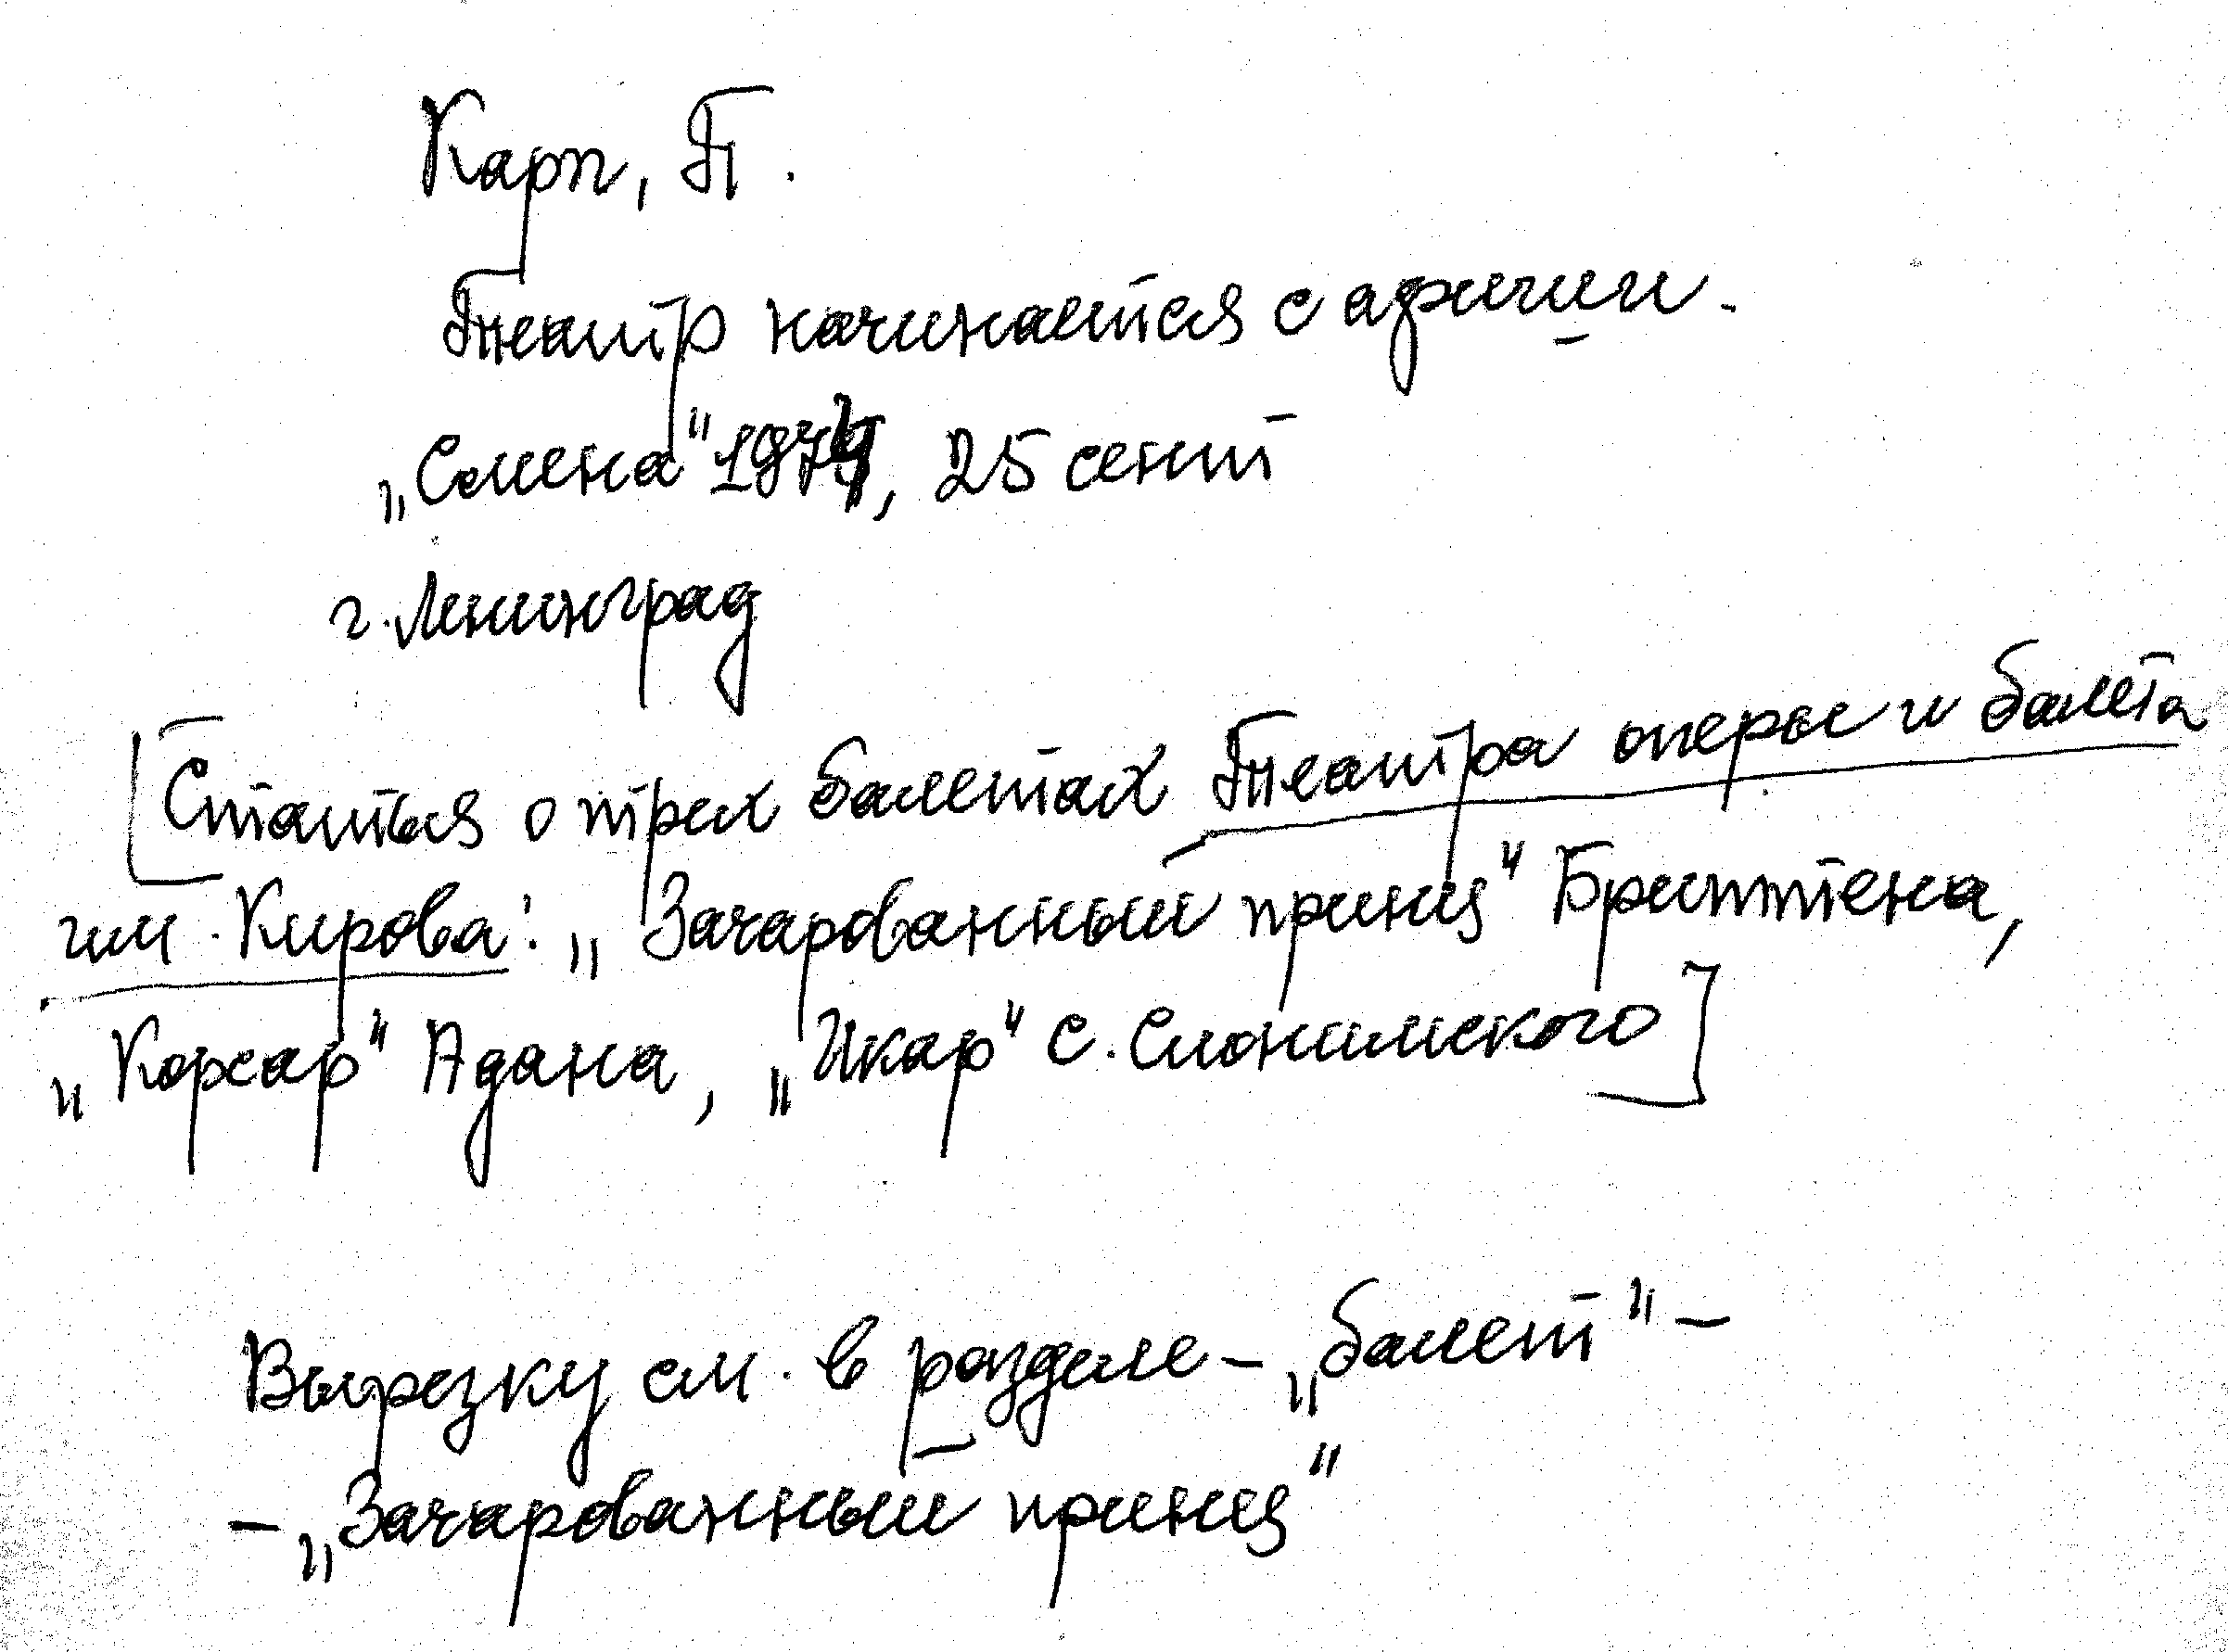 Карп, П.
Театр начинается с афиши.
„Смена" 1974, 25 сент
г. Ленинград
[Статья о трех балетах Театра оперы и балета
им. Кирова: „Зачарованный принц" Бриттена,
„Корсар" Адана, „Икар" С. Слонимского]
Вырезку см. в разделе – „балет" –
– „Зачарованный принц"